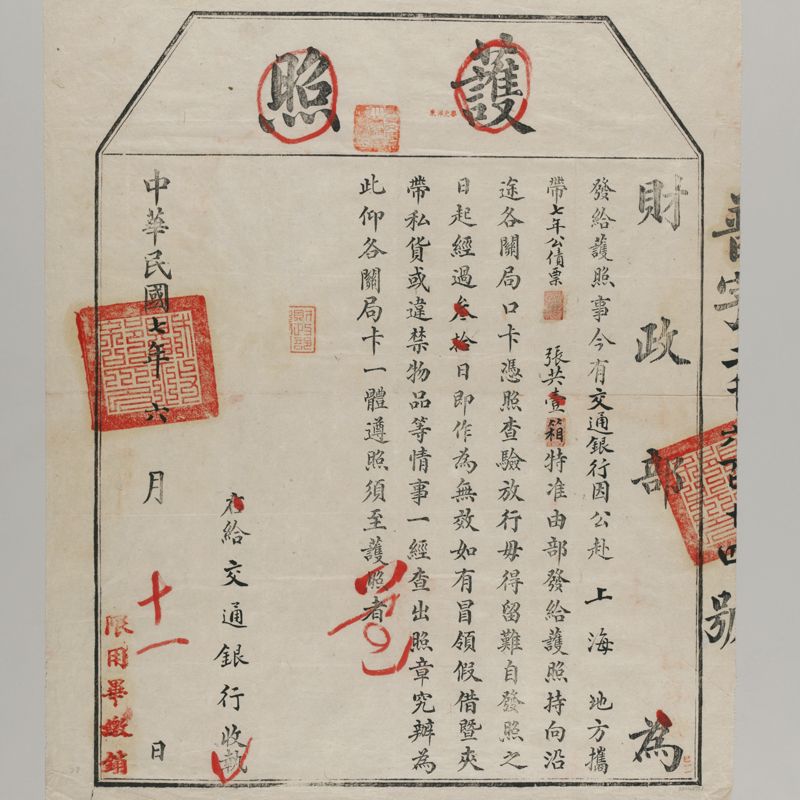 護照
財政部為
發給護照事今有交通銀行因公赴上海地方攜
帶七年公債票張共壹箱特准由部發給護照持向沿
途各關局口卡憑照查驗放行毋得留難自發照之
日起經過叁拾日即作為無效如有冒領假借暨夾
帶私貨或違禁物品等情事一經查出照章究辦為
此仰各關局卡一體遵照須至護照者
右給交通銀行收執
中華民國七年六月十一日
限用畢繳銷